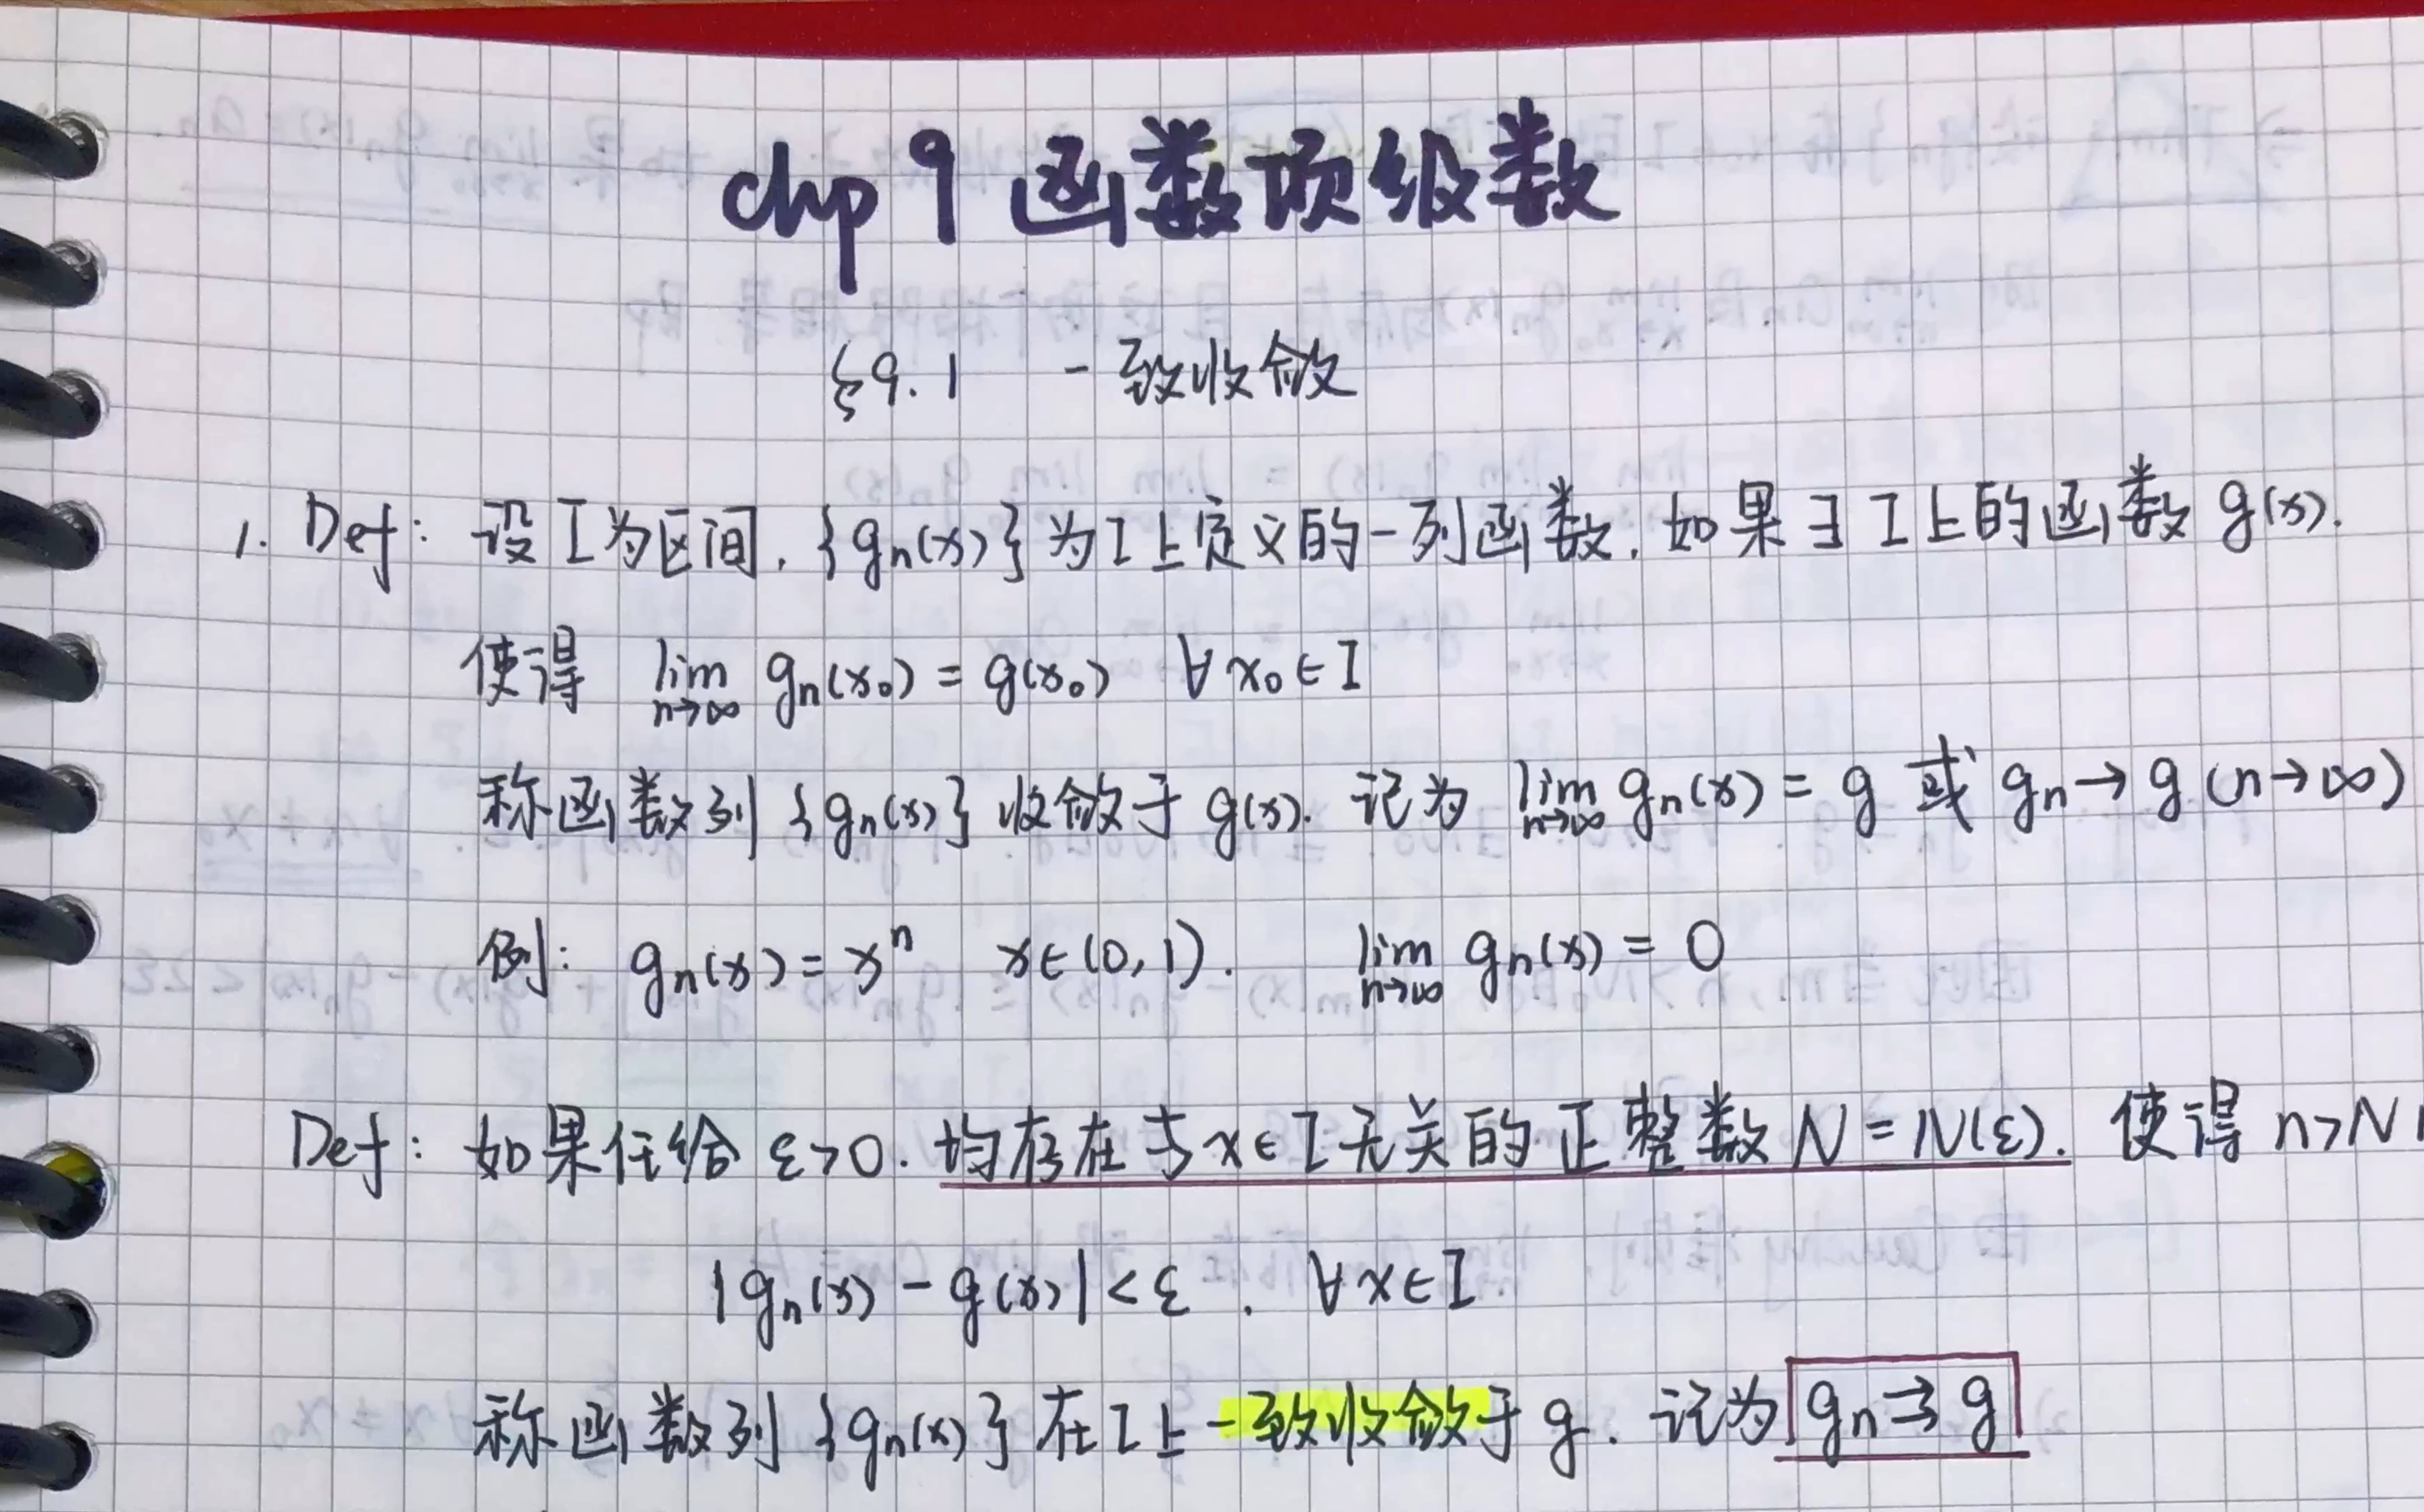 chp 9 函数项级数
§9.1 一致收敛
1. Def: 设 I 为区间, {gₙ(x)} 为 I 上定义的一列函数, 如果 ∃ I 上的函数 g(x).
使得 lim n→∞ gₙ(x₀) = g(x₀) ∀ x₀ ∈ I
称函数列 {gₙ(x)} 收敛于 g(x). 记为 lim n→∞ gₙ(x) = g 或 gₙ → g (n→∞)
例: gₙ(x) = xⁿ x∈(0,1). lim n→∞ gₙ(x) = 0
Def: 如果任给 ε>0. 均存在与 x∈I 无关的正整数 N = N(ε). 使得 n>N
|gₙ(x) - g(x)| < ε . ∀x∈I
称函数列 {gₙ(x)} 在 I 上一致收敛于 g. 记为 gₙ ⇉ g